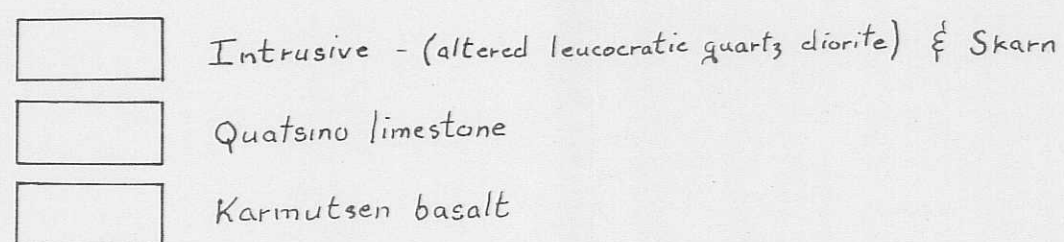 Intrusive - (altered leucocratic quartz diorite) & Skarn
Quatsino limestone
Karmutsen basalt